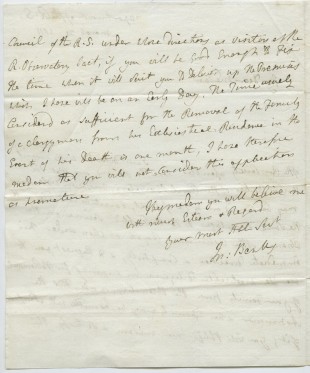 Council of the R.S. under whose directions as Visitors of the
R. Observatory I act, if you will be Good Enough to Fix
the time when it will suit you to Deliver up the Premises
which I hope will be on an Early Day. The Time usualy
Considerd as sufficient for the Removal of the Family
of a Clergyman from his Ecclesiastical Residence in the
Event of his Death is one month, I hope therefore
madam that you will not consider this application
as premature
I beg madam you will believe me
with much Esteem & Regard
your most H'ble Serv't
Jos: Banks